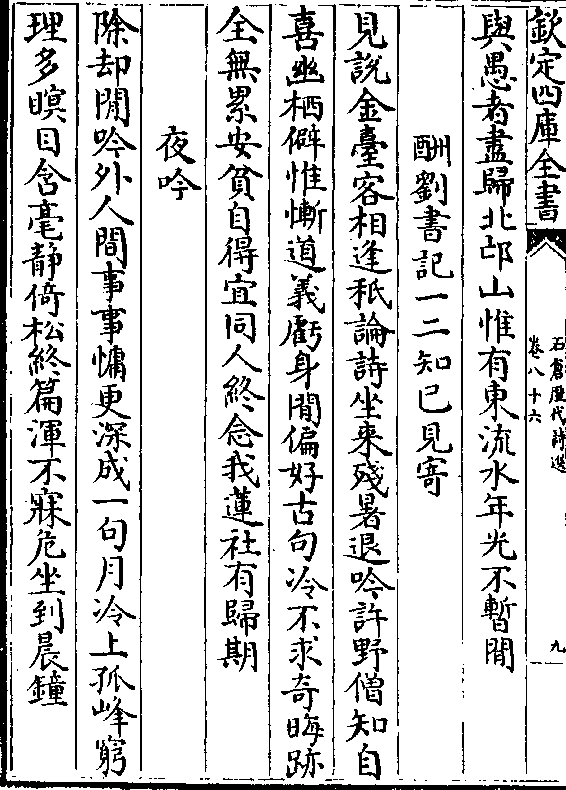 欽定四庫全書
石倉歷代詩選
卷八十六
九
與愚者盡歸北邙山惟有東流水年光不暫閒
酬劉書記一二知已見寄
見說金臺客相逢秖論詩坐來殘暑退吟許野僧知自
喜幽栖僻惟慚道義虧身閒偏好古句冷不求奇晦跡
全無累安貧自得宜同人終念我蓮社有歸期
夜吟
除却閒吟外人間事事慵更深成一句月冷上孤峰窮
理多瞑目含毫静倚松終篇渾不寐危坐到晨鐘